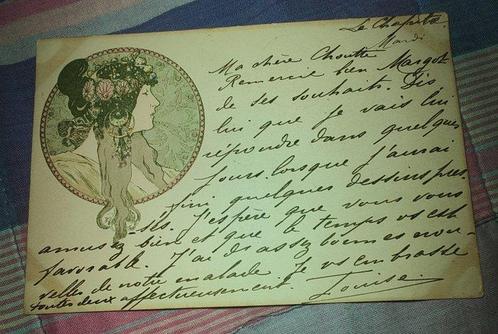 Le Chapitre
Mardi
Ma chère Choutte
Remercie bien Margot
de ses souhaits. Dis
lui que je vais lui
répondre dans quelques
jours lorsque j'aurai
fini quelques dessins pres
sés. J'espère que vous vous
amusez bien et que le temps vs est
favorable. J'ai d'assez bonnes nou-
velles de notre malade. Je vs embrasse
toutes deux affectueusement. Louise